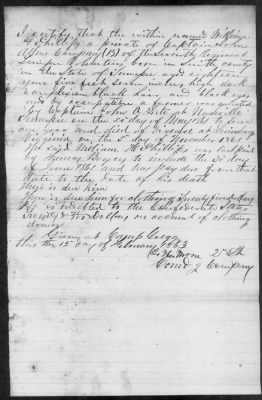 I certify that the within named William
H Phillips a private of Captain John
Allens Company (B) of the Seventh Regiment
Tennessee Volunteers born in Smith county
in the State of Tennessee aged eighteen
years five feet six inches high dark
complexion black hair and black eyes
and by occupation a farmer was enlisted
by Captain John A. Fite at Nashville
Tennessee on the 20 day of May 1861 to serve
one year and died of disease at
Virginia on the 3d day of November 1861
The said William H Phillips was last paid
by to include the 30 day
of June 1861 and has pay due from that
date to the date of his death
There is due him
There is due him for clothing Twenty five dollars
He is indebted to the Confederate States
Twenty two Dollars on account of clothing
drawn
Given at Camp Gregg
this the 12 day of February 1863
2d Lt
Comdg Company